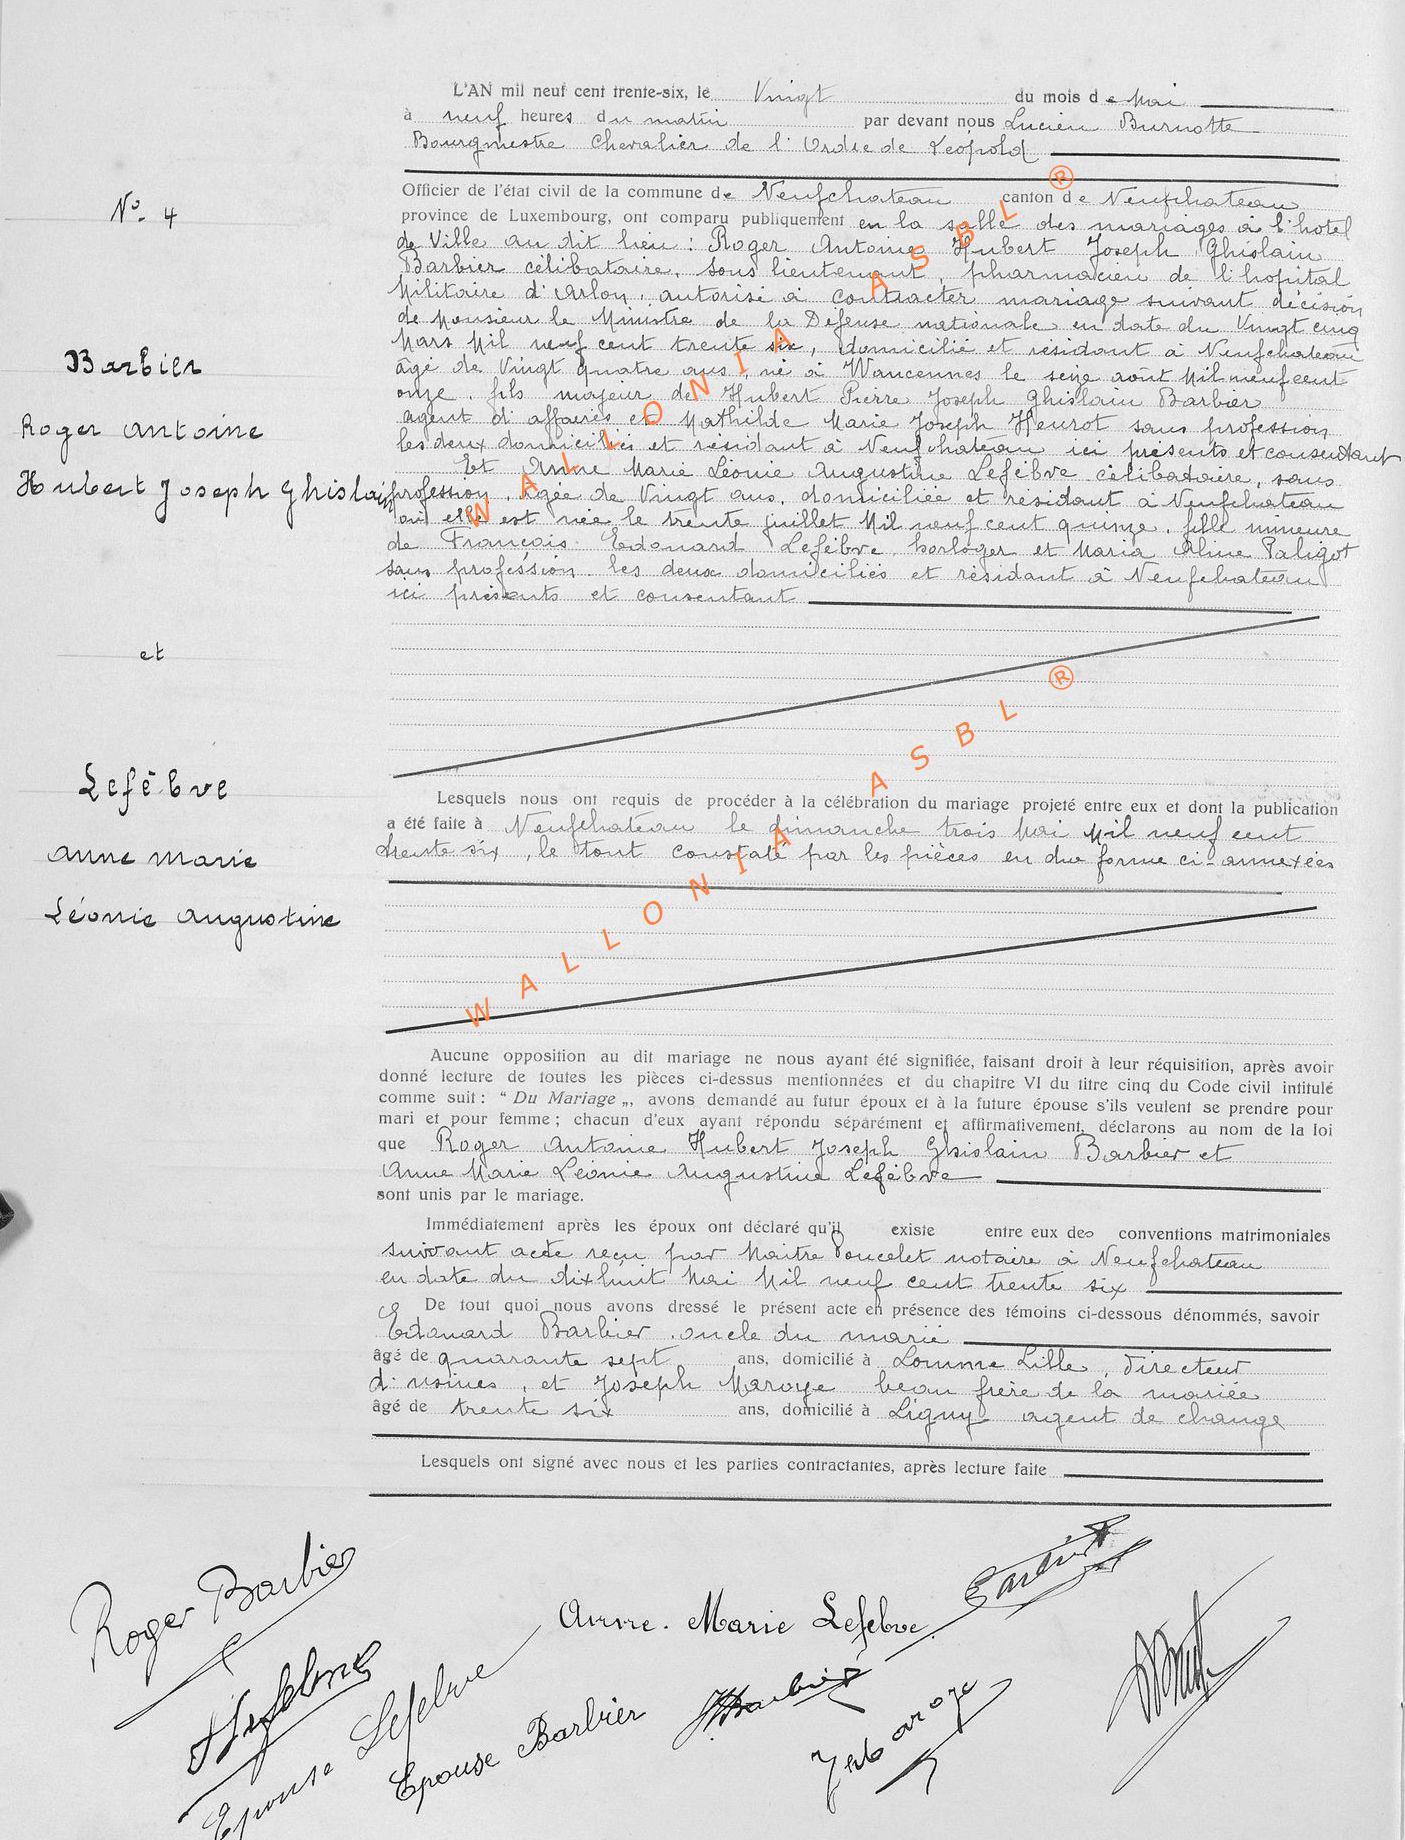 L'AN mil neuf cent trente-six, le Vingt du mois de Mai
à neuf heures du matin par devant nous Lucien Burnotte
Bourgmestre Chevalier de l'Ordre de Léopold
Officier de l'état civil de la commune de Neufchateau canton de Neufchateau
N° 4
province de Luxembourg, ont comparu publiquement en la salle des mariages à l'hotel
de Ville au dit lieu : Roger Antoine Hubert Joseph Ghislain
Barbier célibataire, sous lieutenant, pharmacien de l'hopital
Militaire d'Arlon, autorisé à contracter mariage suivant décision
de Monsieur le Ministre de la Défense nationale en date du Vingt cinq
Mars Mil neuf cent trente six, domicilié et résidant à Neufchateau
Barbier
âgé de Vingt quatre ans, né à Wancennes le seize août Mil neuf cent
onze, fils majeur de Hubert Pierre Joseph Ghislain Barbier
Roger Antoine
agent d'affaires et Mathilde Marie Joseph Heurot sans profession
les deux domiciliés et résidant à Neufchateau ici présents et consentant
Et Anne Marie Léonie Augustine Lefèbve célibataire, sans
Hubert Joseph Ghislain
profession, âgée de Vingt ans, domiciliée et résidant à Neufchateau
où elle est née le trente juillet Mil neuf cent quinze, fille mineure
de François Edouard Lefèbve, horloger et Maria Aline Paligot
sans profession, les deux domiciliés et résidant à Neufchateau
ici présents et consentant
et
Lefèbve
Anne Marie
Léonie Augustine
Lesquels nous ont requis de procéder à la célébration du mariage projeté entre eux et dont la publication
a été faite à Neufchateau le dimanche trois Mai Mil neuf cent
trente six, le tout constaté par les pièces en due forme ci-annexées
Aucune opposition au dit mariage ne nous ayant été signifiée, faisant droit à leur réquisition, après avoir
donné lecture de toutes les pièces ci-dessus mentionnées et du chapitre VI du titre cinq du Code civil intitulé
comme suit : “ Du Mariage „, avons demandé au futur époux et à la future épouse s'ils veulent se prendre pour
mari et pour femme ; chacun d'eux ayant répondu séparément et affirmativement, déclarons au nom de la loi
que Roger Antoine Hubert Joseph Ghislain Barbier et
Anne Marie Léonie Augustine Lefèbve
sont unis par le mariage.
Immédiatement après les époux ont déclaré qu'il existe entre eux des conventions matrimoniales
suivant acte reçu par Maitre Poncelet notaire à Neufchateau
en date du dixhuit Mai Mil neuf cent trente six
De tout quoi nous avons dressé le présent acte en présence des témoins ci-dessous dénommés, savoir
Edouard Barbier, oncle du marié
âgé de quarante sept ans, domicilié à Lomme Lille, directeur
d'usines, et Joseph Maroye beau frère de la mariée
âgé de trente six ans, domicilié à Ligny agent de change
Lesquels ont signé avec nous et les parties contractantes, après lecture faite
Roger Barbier
Anne-Marie Lefebve
Barbier
Lefebve
Epouse Lefebve
Epouse Barbier
HBarbier
WALLONIA ASBL ®
WALLONIA ASBL ®